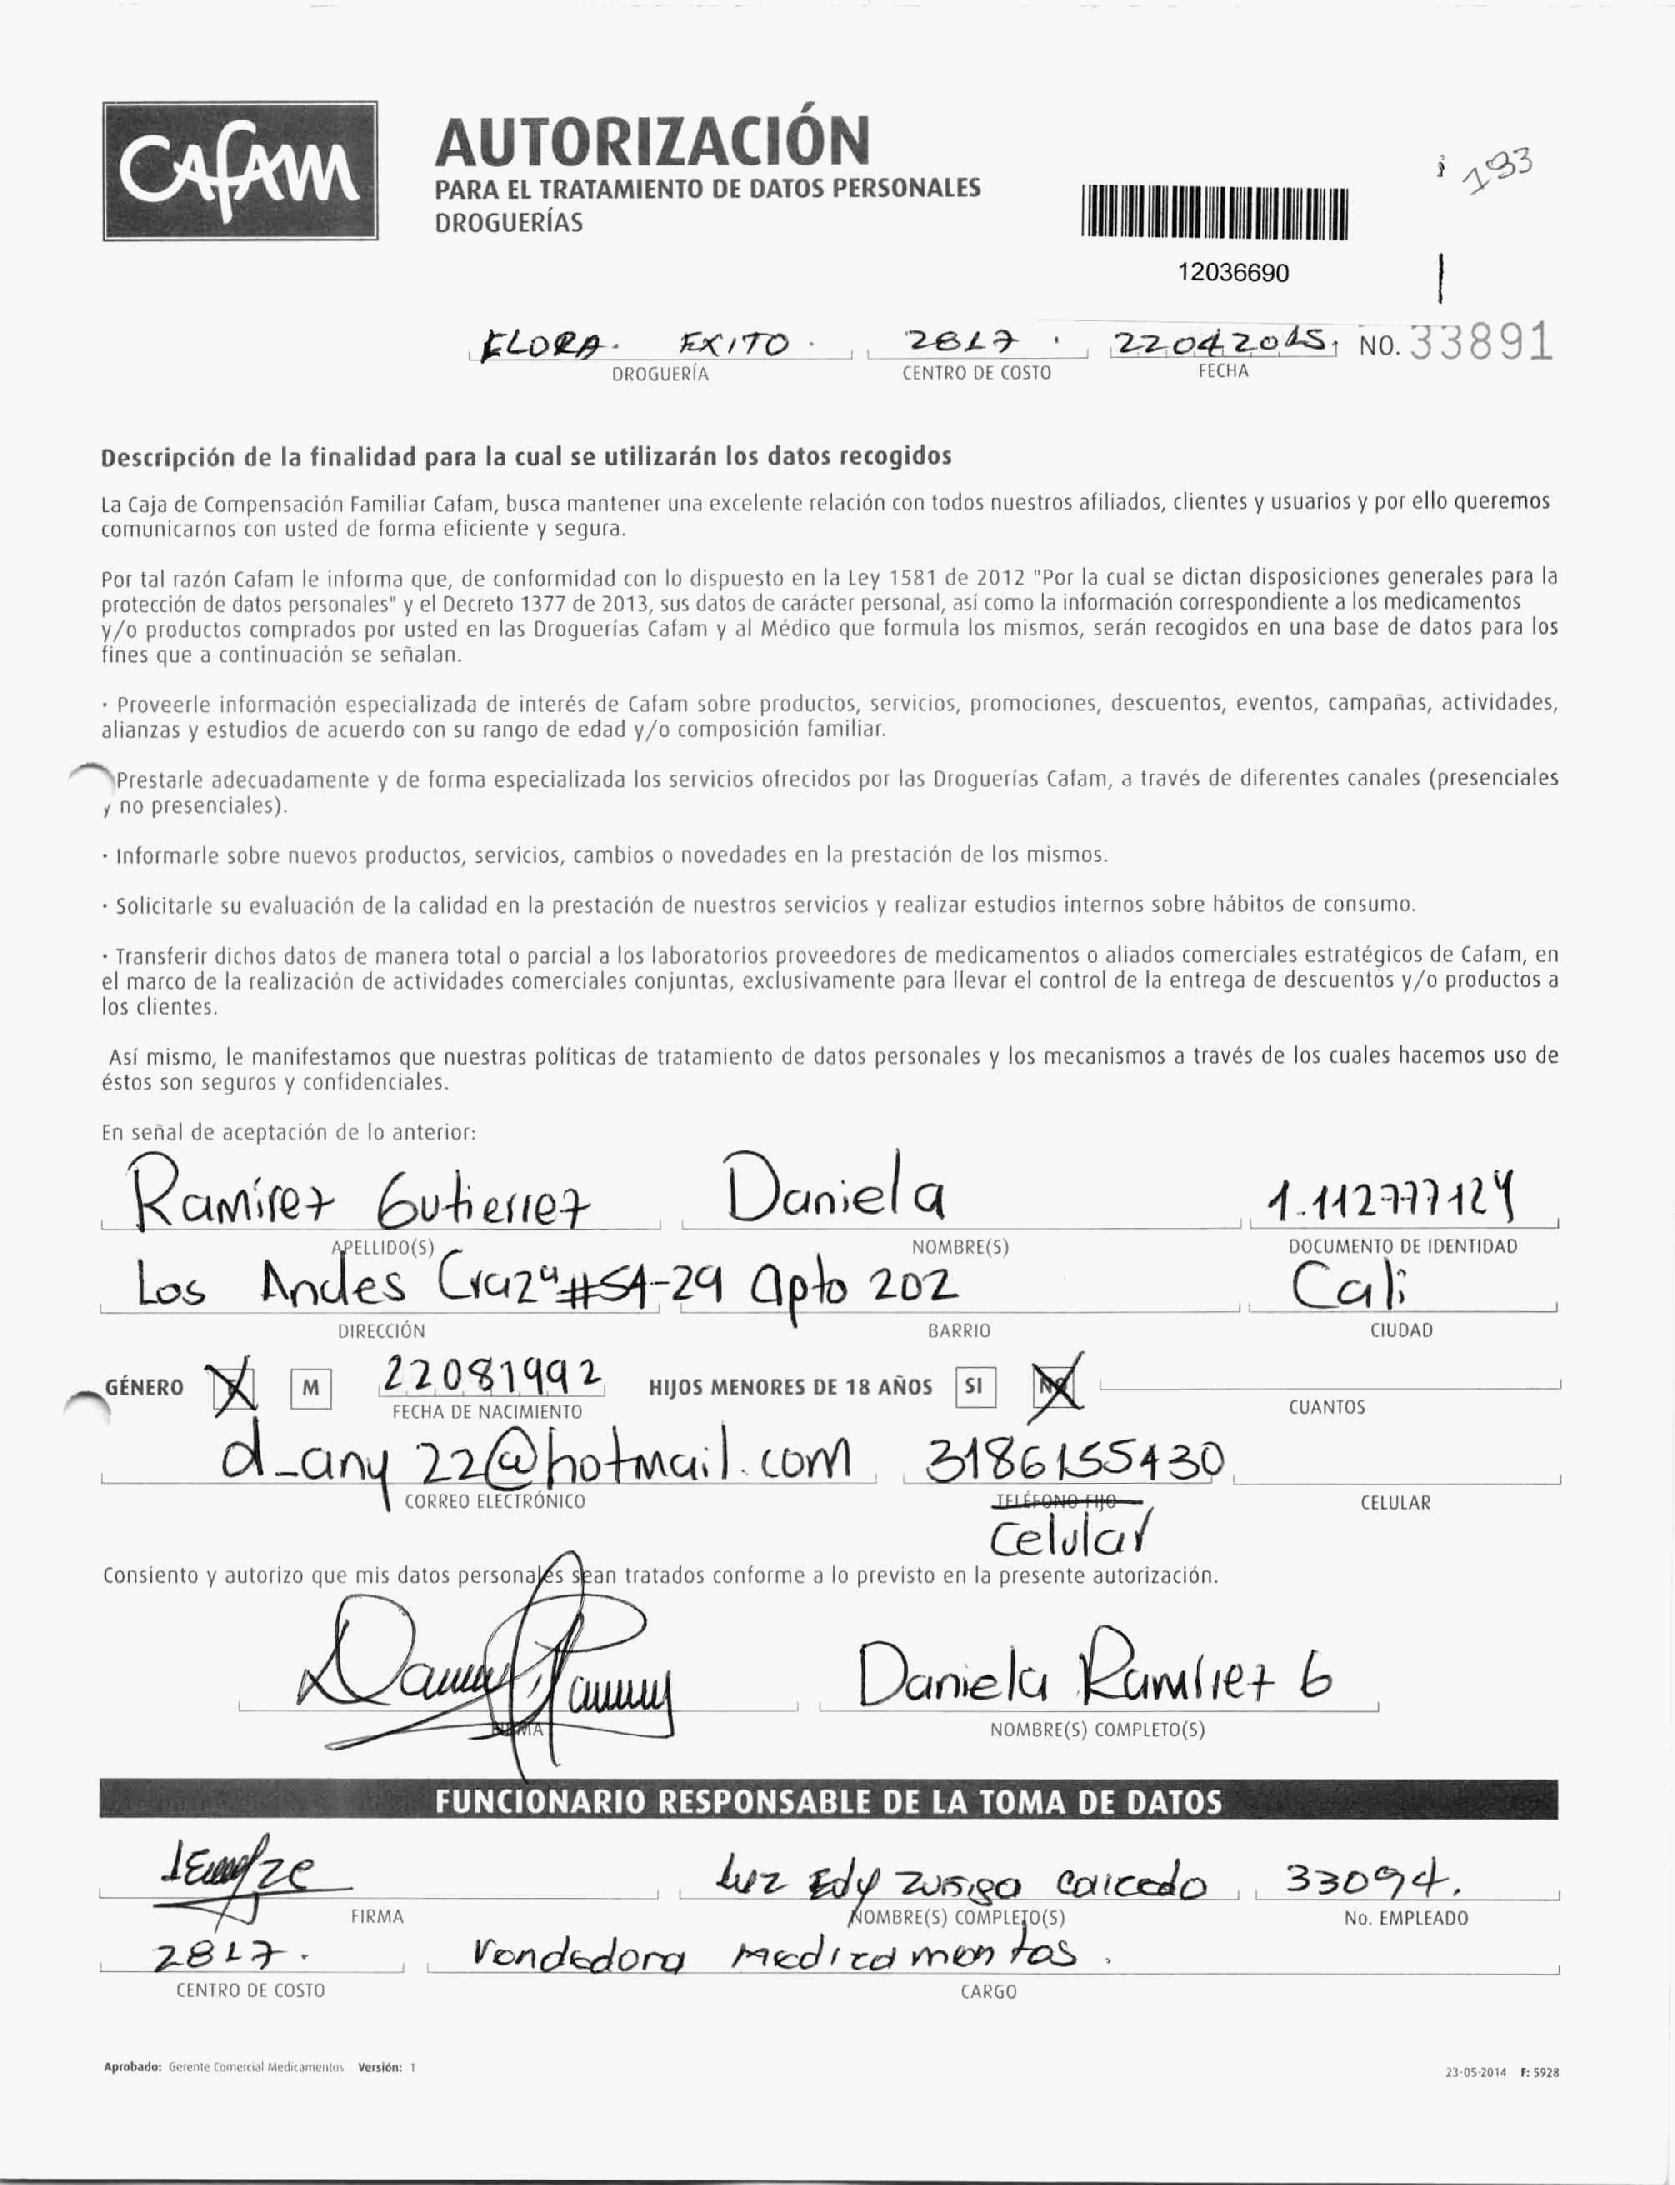 Cafam
AUTORIZACIÓN
PARA EL TRATAMIENTO DE DATOS PERSONALES
DROGUERÍAS
193
12036690
FLORA. EXITO. 2817. 22042015 NO. 33891
DROGUERÍA CENTRO DE COSTO FECHA
Descripción de la finalidad para la cual se utilizarán los datos recogidos
La Caja de Compensación Familiar Cafam, busca mantener una excelente relación con todos nuestros afiliados, clientes y usuarios y por ello queremos
comunicarnos con usted de forma eficiente y segura.
Por tal razón Cafam le informa que, de conformidad con lo dispuesto en la Ley 1581 de 2012 "Por la cual se dictan disposiciones generales para la
protección de datos personales" y el Decreto 1377 de 2013, sus datos de carácter personal, así como la información correspondiente a los medicamentos
y/o productos comprados por usted en las Droguerías Cafam y al Médico que formula los mismos, serán recogidos en una base de datos para los
fines que a continuación se señalan.
· Proveerle información especializada de interés de Cafam sobre productos, servicios, promociones, descuentos, eventos, campañas, actividades,
alianzas y estudios de acuerdo con su rango de edad y/o composición familiar.
Prestarle adecuadamente y de forma especializada los servicios ofrecidos por las Droguerías Cafam, a través de diferentes canales (presenciales
y no presenciales).
· Informarle sobre nuevos productos, servicios, cambios o novedades en la prestación de los mismos.
· Solicitarle su evaluación de la calidad en la prestación de nuestros servicios y realizar estudios internos sobre hábitos de consumo.
· Transferir dichos datos de manera total o parcial a los laboratorios proveedores de medicamentos o aliados comerciales estratégicos de Cafam, en
el marco de la realización de actividades comerciales conjuntas, exclusivamente para llevar el control de la entrega de descuentos y/o productos a
los clientes.
Así mismo, le manifestamos que nuestras políticas de tratamiento de datos personales y los mecanismos a través de los cuales hacemos uso de
éstos son seguros y confidenciales.
En señal de aceptación de lo anterior:
Ramirez Gutierrez Daniela 1.112777124
APELLIDO(S) NOMBRE(S) DOCUMENTO DE IDENTIDAD
Los Andes Cra2ª#51-29 apto 202 Cali
DIRECCIÓN BARRIO CIUDAD
GÉNERO M 22081992 HIJOS MENORES DE 18 AÑOS SI NO
FECHA DE NACIMIENTO CUANTOS
d_any22@hotmail.com 3186155430
CORREO ELECTRÓNICO TELÉFONO FIJO CELULAR
Celular
Consiento y autorizo que mis datos personales sean tratados conforme a lo previsto en la presente autorización.
Daniela Ramirez G
FIRMA NOMBRE(S) COMPLETO(S)
FUNCIONARIO RESPONSABLE DE LA TOMA DE DATOS
Luz Edy Zuñiga Caicedo 33094.
FIRMA NOMBRE(S) COMPLETO(S) No. EMPLEADO
2817. Vendedora medicamentos.
CENTRO DE COSTO CARGO
Aprobado: Gerente Comercial Medicamentos Versión: 1
23-05-2014 F: 5928